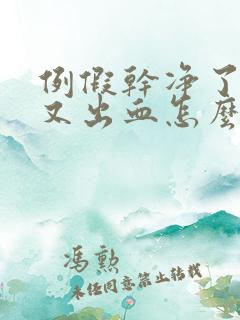 例假幹净了
又出血怎麼
冯勲
未经同意禁止转载